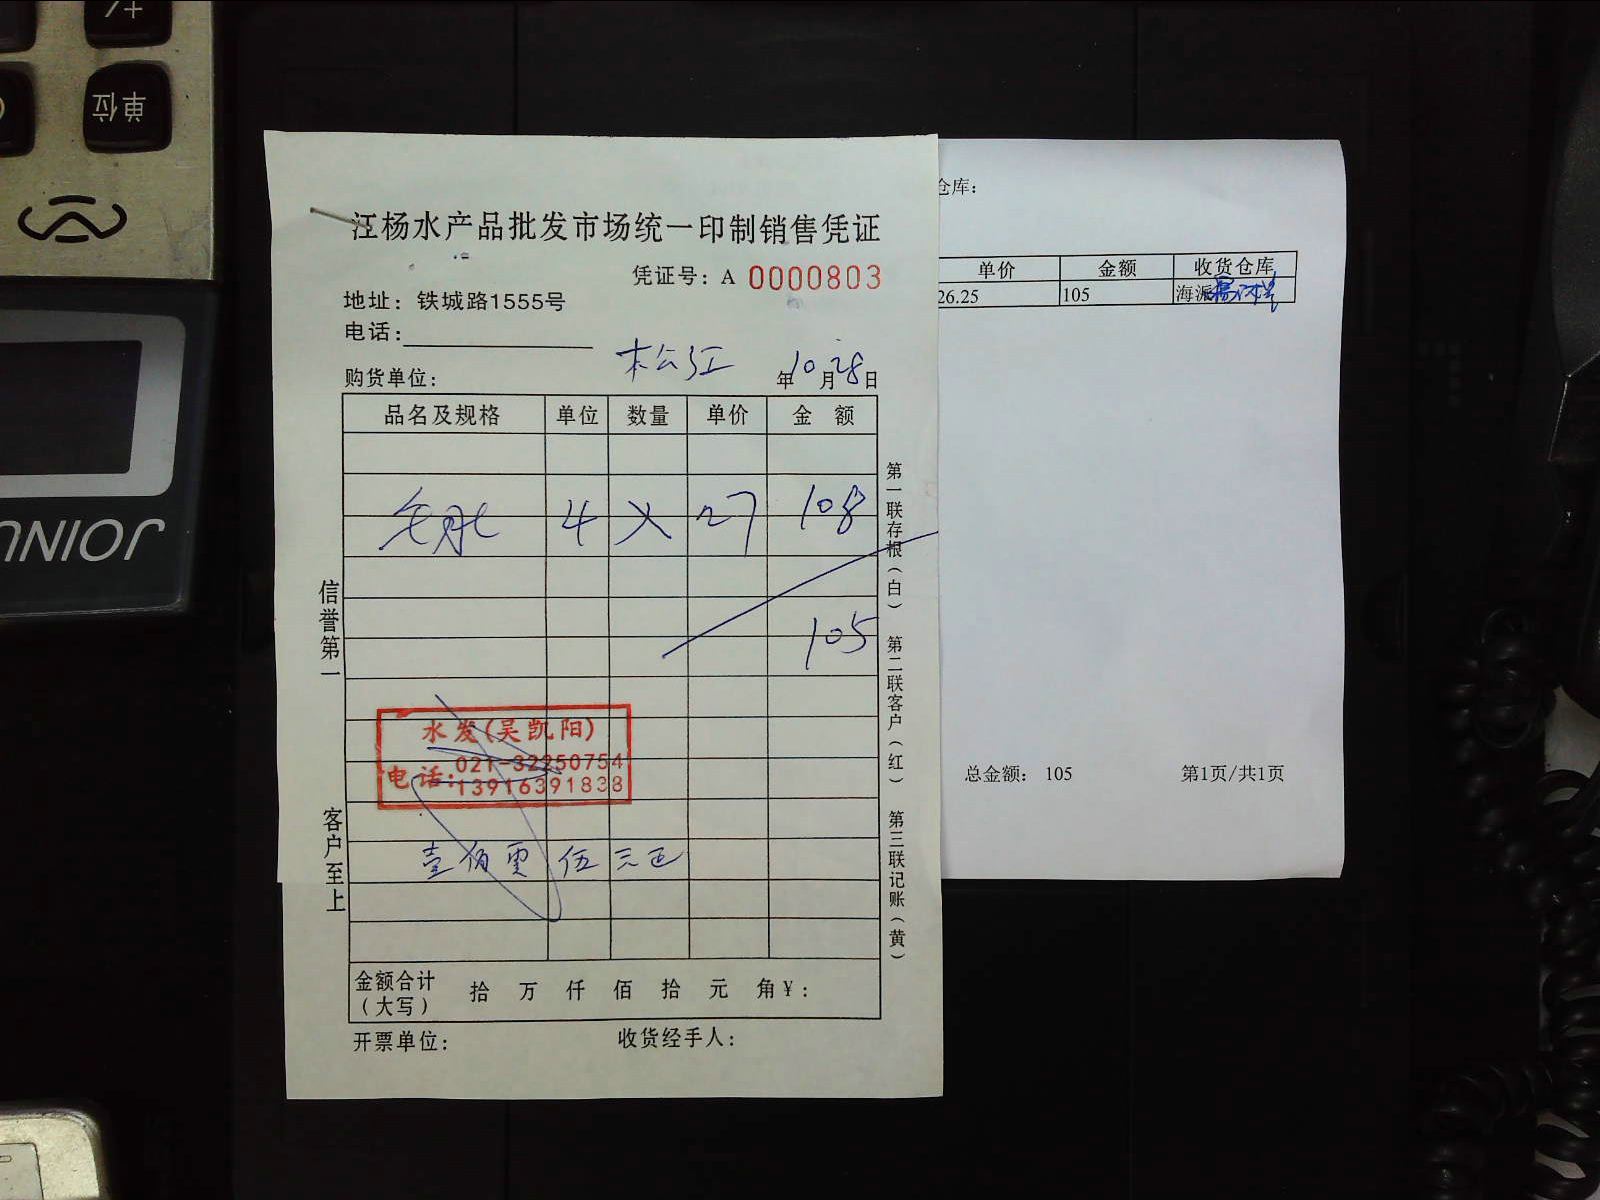 单位
JOINU
江杨水产品批发市场统一印制销售凭证
凭证号：A 0000803
地址：铁城路1555号
电话：
松江
购货单位： 年10月28日
品名及规格 单位 数量 单价 金 额
4 27 108
105
水发(吴凯阳)
电话：021-32250754
13916391838
壹佰零伍元正
金额合计（大写） 拾 万 仟 佰 拾 元 角￥：
开票单位： 收货经手人：
信誉第一 客户至上
第一联存根（白） 第二联客户（红） 第三联记账（黄）
仓库：
单价 金额 收货仓库
26.25 105 海派
总金额： 105 第1页/共1页